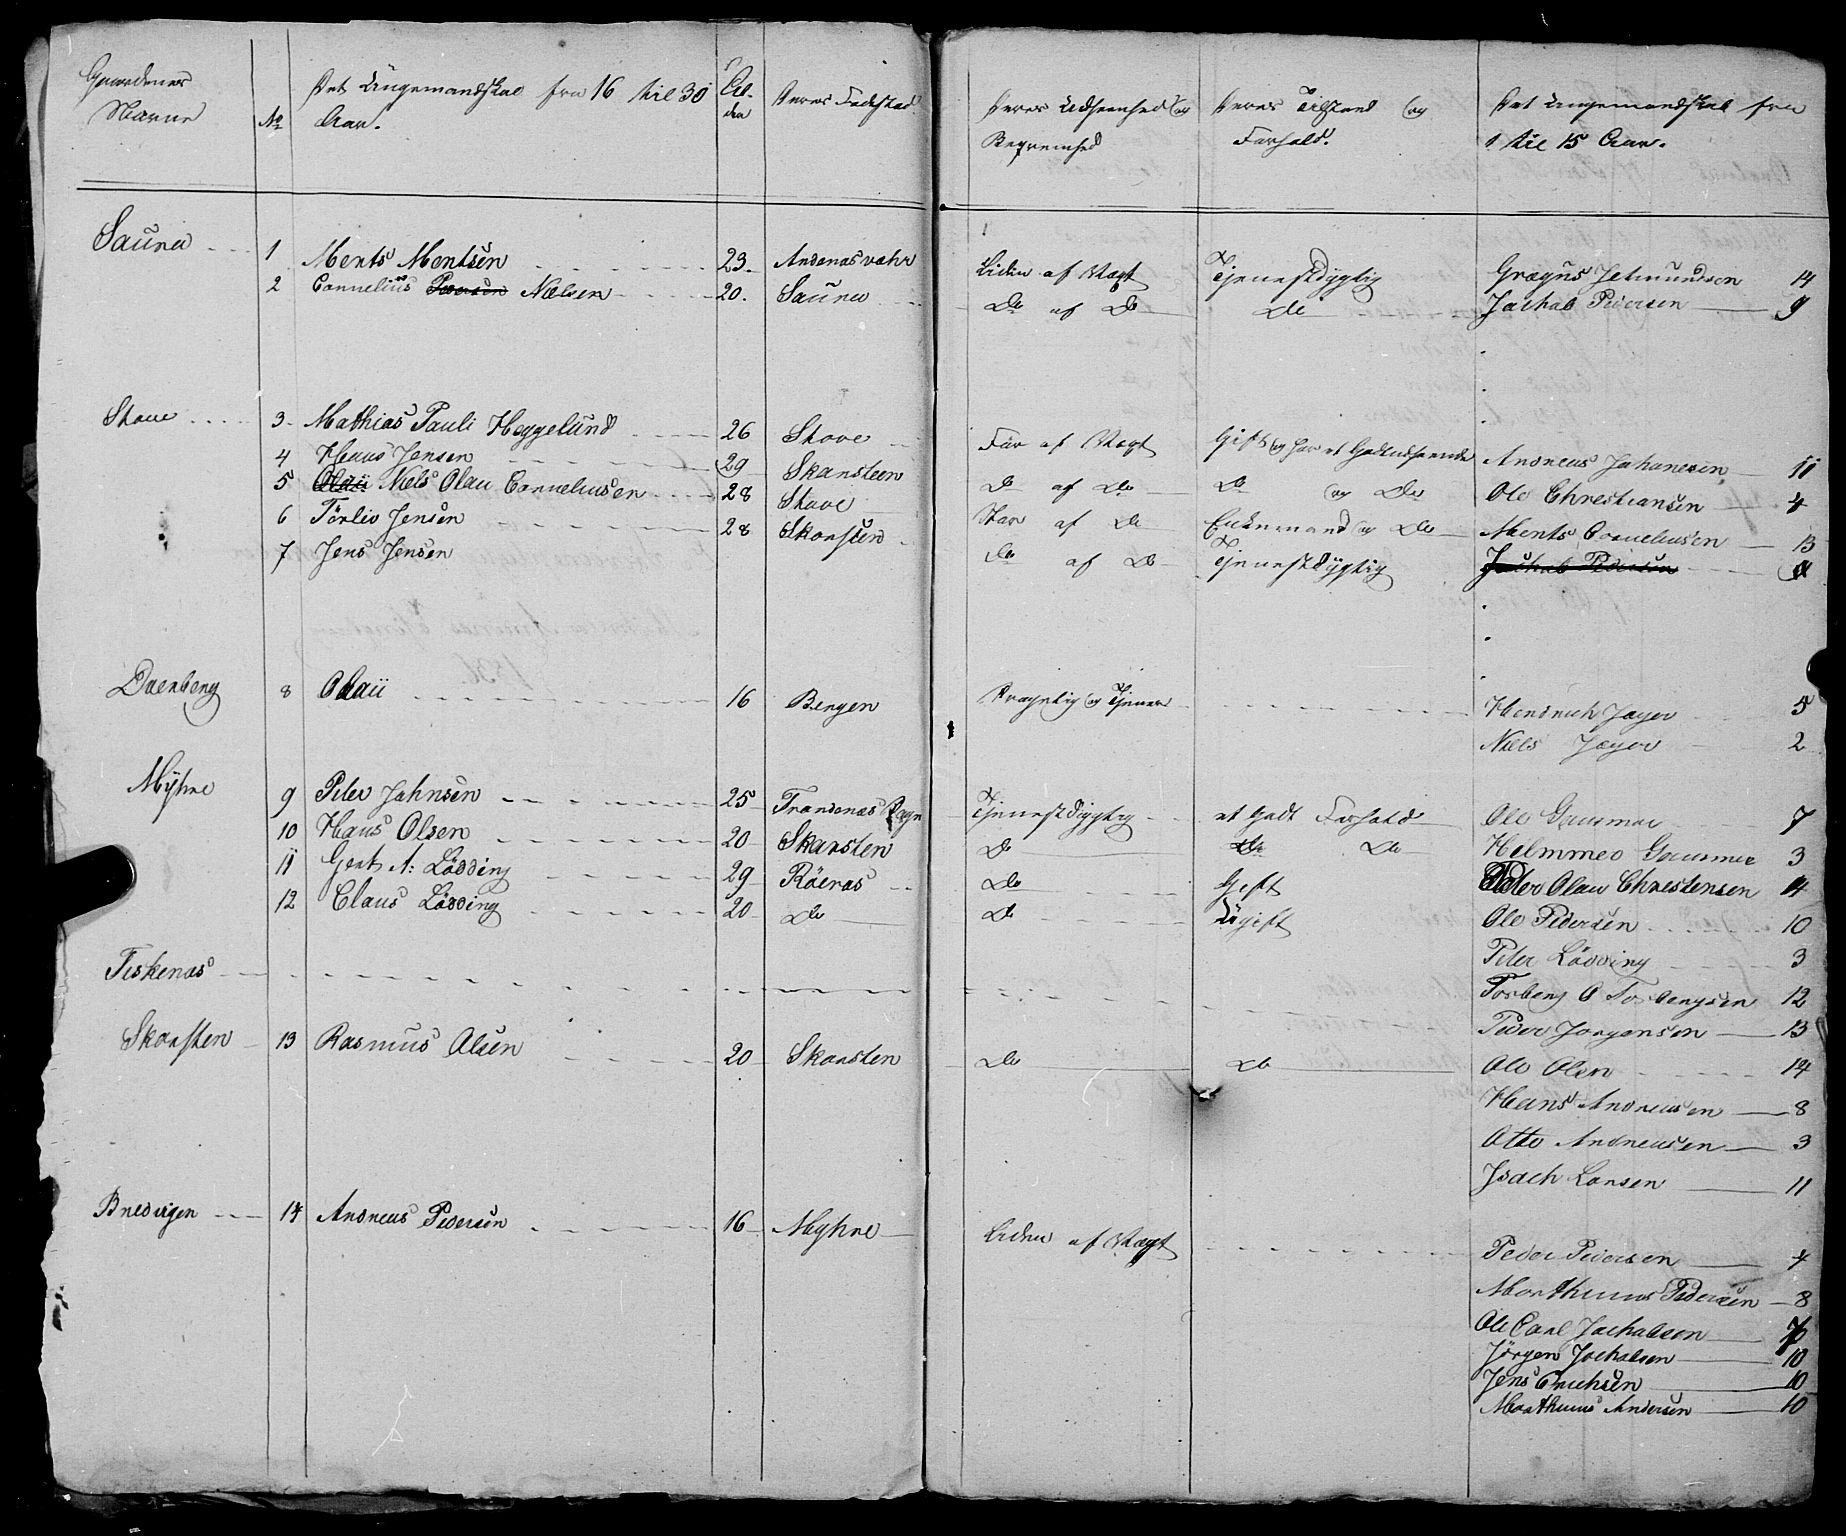 Gaardenes Navne
No
Det Ungemandskab fra 16 til 30 Aar.
Al-der
Deres Fødestad
Deres Udseenhed og Beqvemhed
Deres Tilstand og Forhold.
Det Ungemandskab fra 1 til 15 Aar.
Saura 1 Ments Mentsen 23. Andenæs væhr Liden af Vægt Tjenestdygtig Jetmundsen 14
2 Cornelius Pedersen Nielsen 20. Saura Do af Do Do Jachab Pedersen 9
Stave 3 Mathias Pauli Heggelund 26 Stave Før af Vægt Gift og har et Godtudseende Andreas Johanesen 11
4 Hans Jensen 29 Skansteen Do af Do Do og Do Ole Christiansen 4
5 Olaii Niels Olau Corneliusen 28 Stave Stor af Do Enkemand og Do Ments Corneliusen 13
6 Törliv Jensen 28 Skarsten Do af Do Tjenestdygtig Jachab Pedersen
7 Jens Jensen
Daenberg 8 Olaii 16 Bergen og Tjener Hendrich Jæger 5
Niels Jæger 2
Myhre 9 Peter Jahnsen 25 Trondenæs Sogn Tjenestdygtig et Godt Forhold Ole Gammer 7
10 Hans Olsen 20 Skarsten Do Do Do Helmmer Gammer 3
11 Gert A: Lödding 29 Röeraas Do Gift Peter Olau Christensen 14
12 Claus Lödding 20 Do Do Ugift Ole Pedersen 10
Peter Lödding 3
Fiskenæs Torberg O Torbergsen 12
Peder Jørgensen 13
Skarsten 13 Rasmus Olsen 20 Skarsten Do Do Ole Olsen 14
Hans Andreasen 8
Otto Andreasen 3
Isach Larsen 11
Bredvigen 14 Andreas Pedersen 16 Myhre Liden af Vægt Peder Pedersen 4
Morthinus Pedersen 8
Ole Carl Jachabsen
Jörgen Jachabsen 10
Jens Erichsen 10
Morthinus Andersen 10